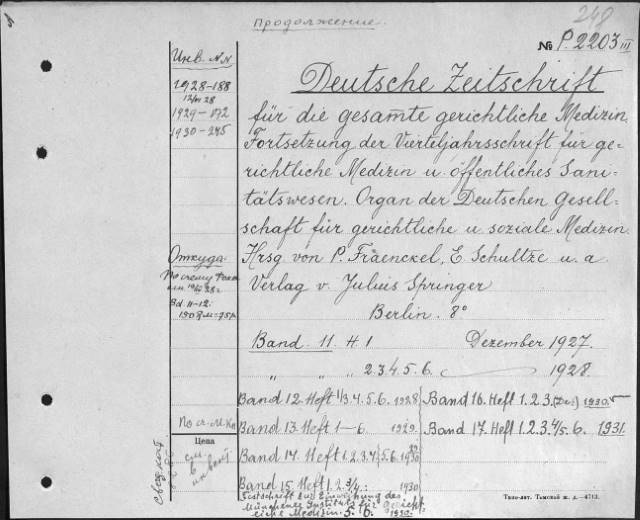 продолжение.
248
№ P.2203 III
Инв. NN
1928-188
12/VI 28
1929-172
1930-245
Откуда.
По счету
Bd. 11-12:
Цена
Deutsche Zeitschrift
für die gesamte gerichtliche Medizin.
Fortsetzung der Vierteljahrsschrift für ge-
richtliche Medizin u. öffentliches Sani-
tätswesen. Organ der Deutschen Gesell-
schaft für gerichtliche u. soziale Medizin.
Hrsg. von P. Fräenckel, E. Schultze u. a.
Verlag v. Julius Springer
Berlin. 8°
Band 11. H 1 Dezember 1927.
„ „ „ 2.3.4.5.6. 1928.
Band 12. Heft 1/3.4.5.6. 1928
Band 13. Heft 1-6. 1929.
Band 14. Heft 1.2.3.4/5.6. 1930
Band 15. Heft 1.2.3/4.: 1930
Festschrift zur Einweihung des
Münchener Instituts für gericht-
liche Medizin. 5. 6. 1930.
Band 16. Heft 1.2.3. (Dez.) 1930.
Band 17. Heft 1.2.3.4/5.6. 1931.
Типо-лит. Томской ж. д.